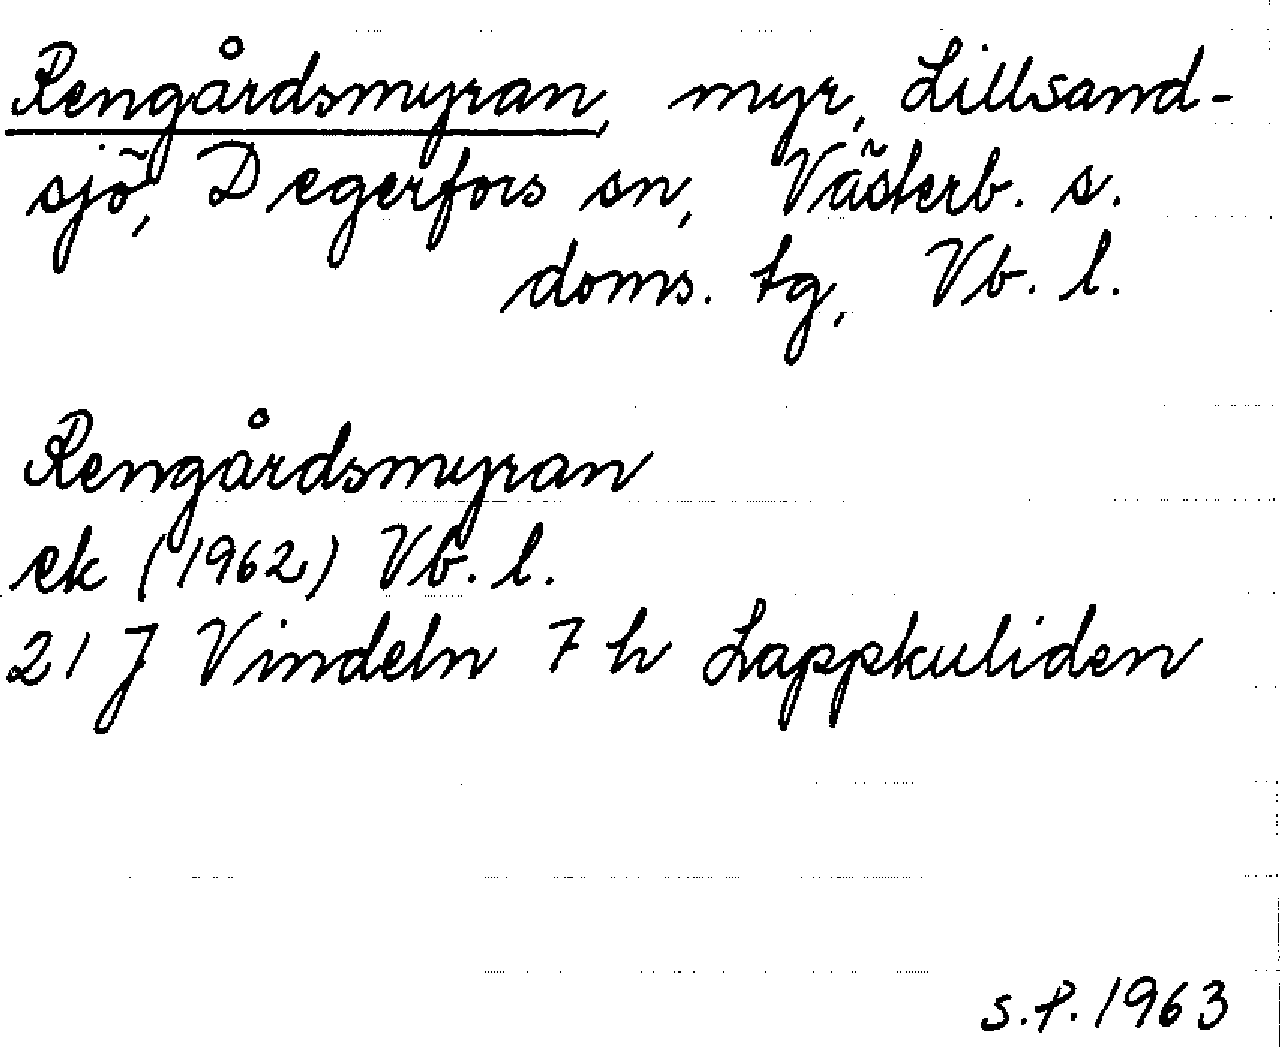 Rengårdsmyran, myr, Lillsand-
sjö, Degerfors sn, Västerb. s.
doms. tg, Vb. l.
Rengårdsmyran
ek (1962) Vb. l.
21 J Vindeln 7 h Lappkuliden
s.P. 1963